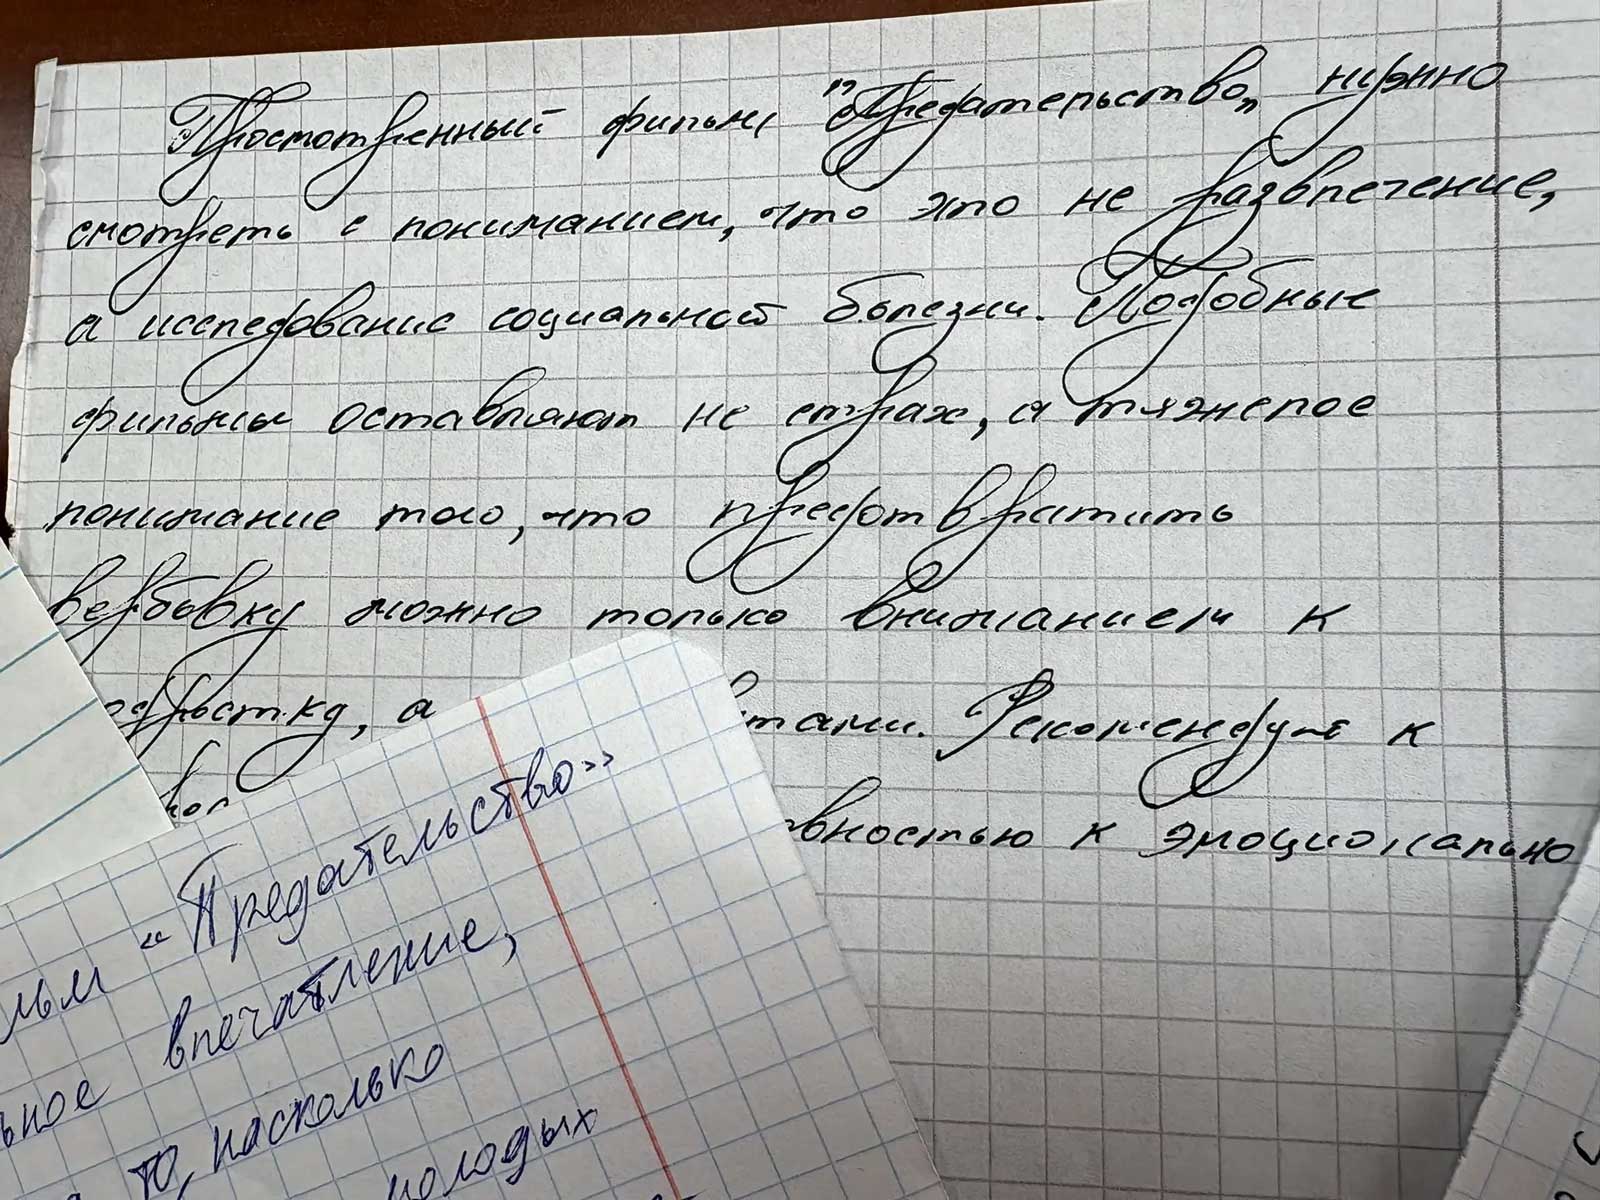 Просмотренный фильм "Предательство" нужно
смотреть с пониманием, что это не развлечение,
а исследование социальной болезни. Подобные
фильмы оставляют не страх, а тяжелое
понимание того, что предотвратить
вербовку можно только вниманием к
подростку, а
тами. Рекомендую к
вностью к эмоционально
льм «Предательство»
ьное впечатление,
то, насколько
молодых